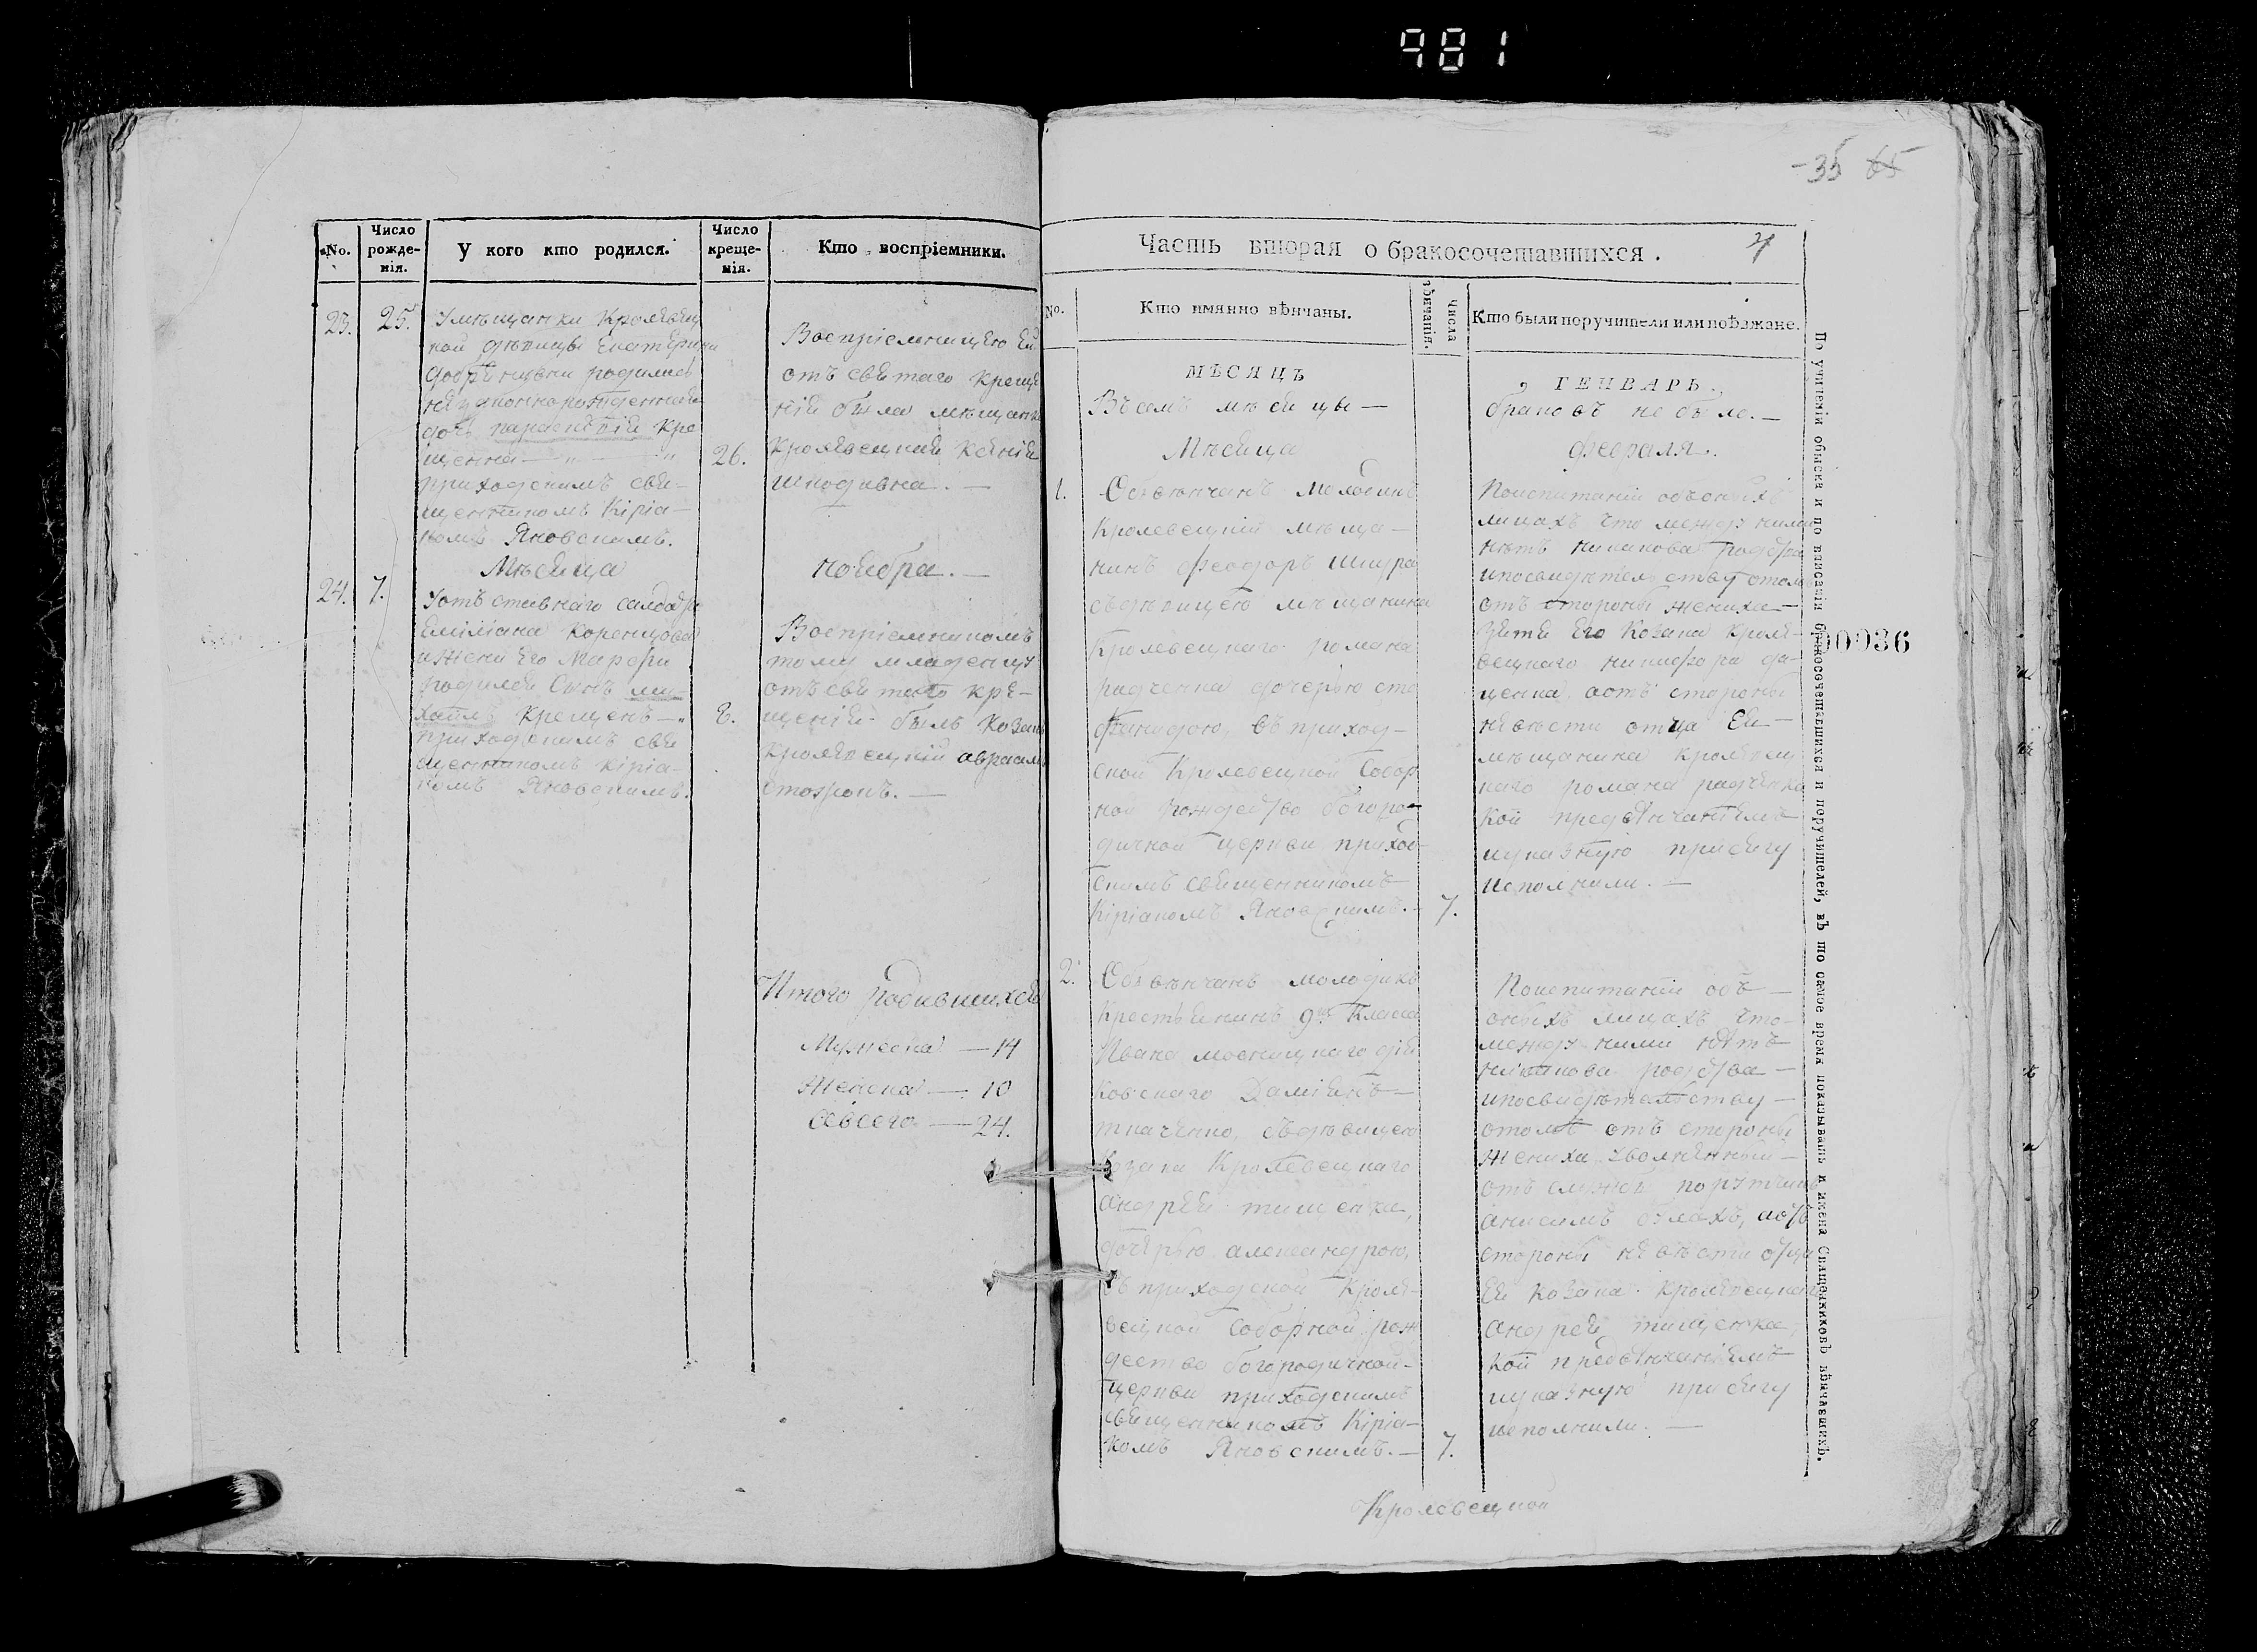 981
-35 65
No.
Число рожде-нія.
У кого кто родился.
Число креще-нія.
Кто воспріемники.
23.
25.
Умѣщанки Кролевец
кой дѣвицы Екатерини
родилась
незаконнорожденная
дочь параскевія Кре
щенна
приходскимъ свя-
щенникомъ Кіріа-
комъ Яновскимъ.
26.
Воспріемницею Ей
отъ святаго Креще
нія была мѣщанка
Кролевецкая Ксенія
Мѣсяца
ноября.
24.
7.
Уотъставнаго салдата
Емиліана Коренцова
ижени Его Марфи
родился Сынъ ми-
хаилъ Крещенъ
приходскимъ свя
щенникомъ Кіріа-
комъ Яновскимъ.
8.
Воспріемникомъ
тому младенцу
отъ святаго кре-
щенія былъ Козакъ
Кролевецкій авраамъ
Итого родившихся
Мужеска — 14
Женска — 10
авсего — 24.
Часть вторая о бракосочетавшихся.
4
No.
Кто имянно вѣнчаны.
Числа вѣнчанія.
Кто были поручители или поѣзжане.
МѢСЯЦЪ
ГЕНВАРЬ.
Въсемъ мѣсяцы —
браковъ не было. —
Мѣсяца
февраля.
1.
Обвѣнчанъ молодикъ
Кролевецкій мѣща-
нинъ Феодоръ
съдѣвицею мѣщанина
Кролевецкаго романа
радченка дочерью
въприход-
ской Кролевецкой Собор
ной рождество богоро-
дичной церкви приход-
скимъ священникомъ
Кіріакомъ Яновскимъ. —
7.
Поиспитаніи объонихъ
лицахъ что между ними
нѣтъ никакова родства
ипосвидѣтельству отомъ
отъ стороны жениха —
Зятя Его Козака Кроле-
вецкаго никифора
аотъ стороны
невѣсти отца Ея —
мѣщанина Кролевец
каго романа радченка
Кои предвѣнчаніемъ
иуказную присягу
исполнили. —
2.
Обвѣнчанъ молодикъ
Крестьянинъ 9го Класса
Ивана
Даміянъ —
ткаченко, съдѣвицею
козака Кролевецкаго
андрея тищенка,
дочерью александрою,
въприходской Кроле-
вецкой Соборной рож
дество богородичной —
церкви приходскимъ
священникомъ Кіріа-
комъ Яновскимъ. —
7.
Поиспитаніи объ —
онихъ лицахъ что —
между ними нѣтъ
никакова родства —
ипосвидѣтельству —
отомъ отъ стороны
жениха уволненный —
отъ служби поручикъ
аотъ
стороны невѣсти отца
Ея Козака Кролевецкаго
андрея тищенка,
Кои предвѣнчаніемъ
иуказную присягу
исполнили. —
Кролевецкой
По учиненіи обыска и по вписаніи бракосочетавшихся и поручителей, въ то самое время показывать и имена Священниковъ вѣнчавшихъ.
00036